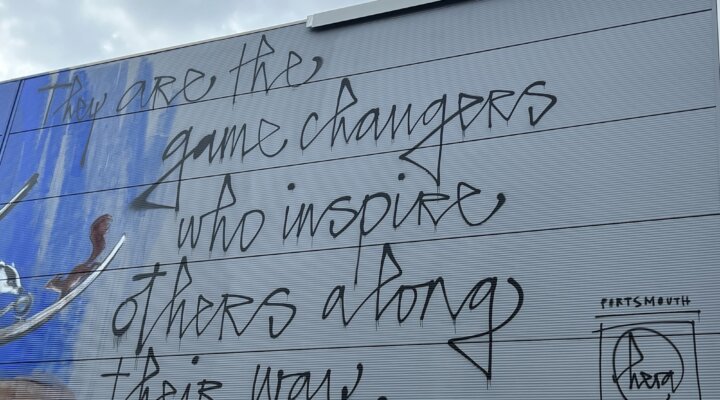 they are the
game changers
who inspire
others along
their way.
PORTSMOUTH
hera